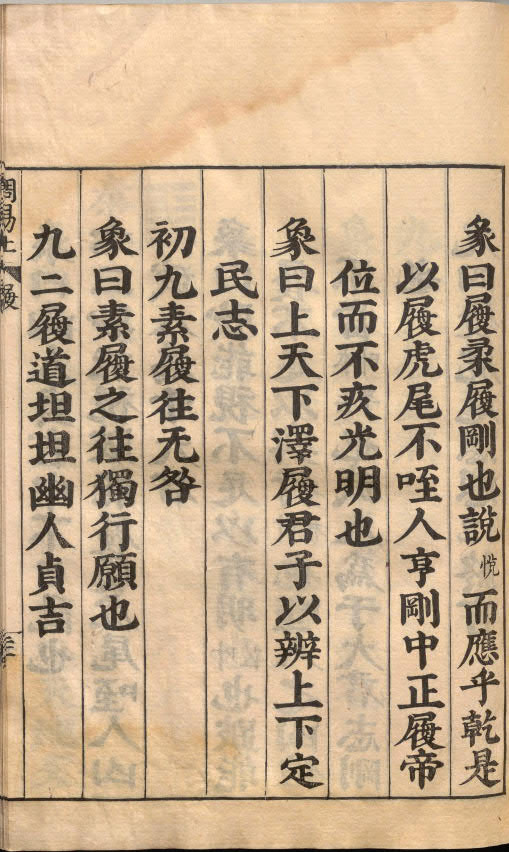 彖曰履柔履剛也說悅而應乎乾是
以履虎尾不咥人亨剛中正履帝
位而不疚光明也
象曰上天下澤履君子以辨上下定
民志
初九素履往无咎
象曰素履之往獨行願也
九二履道坦坦幽人貞吉
周易上 履